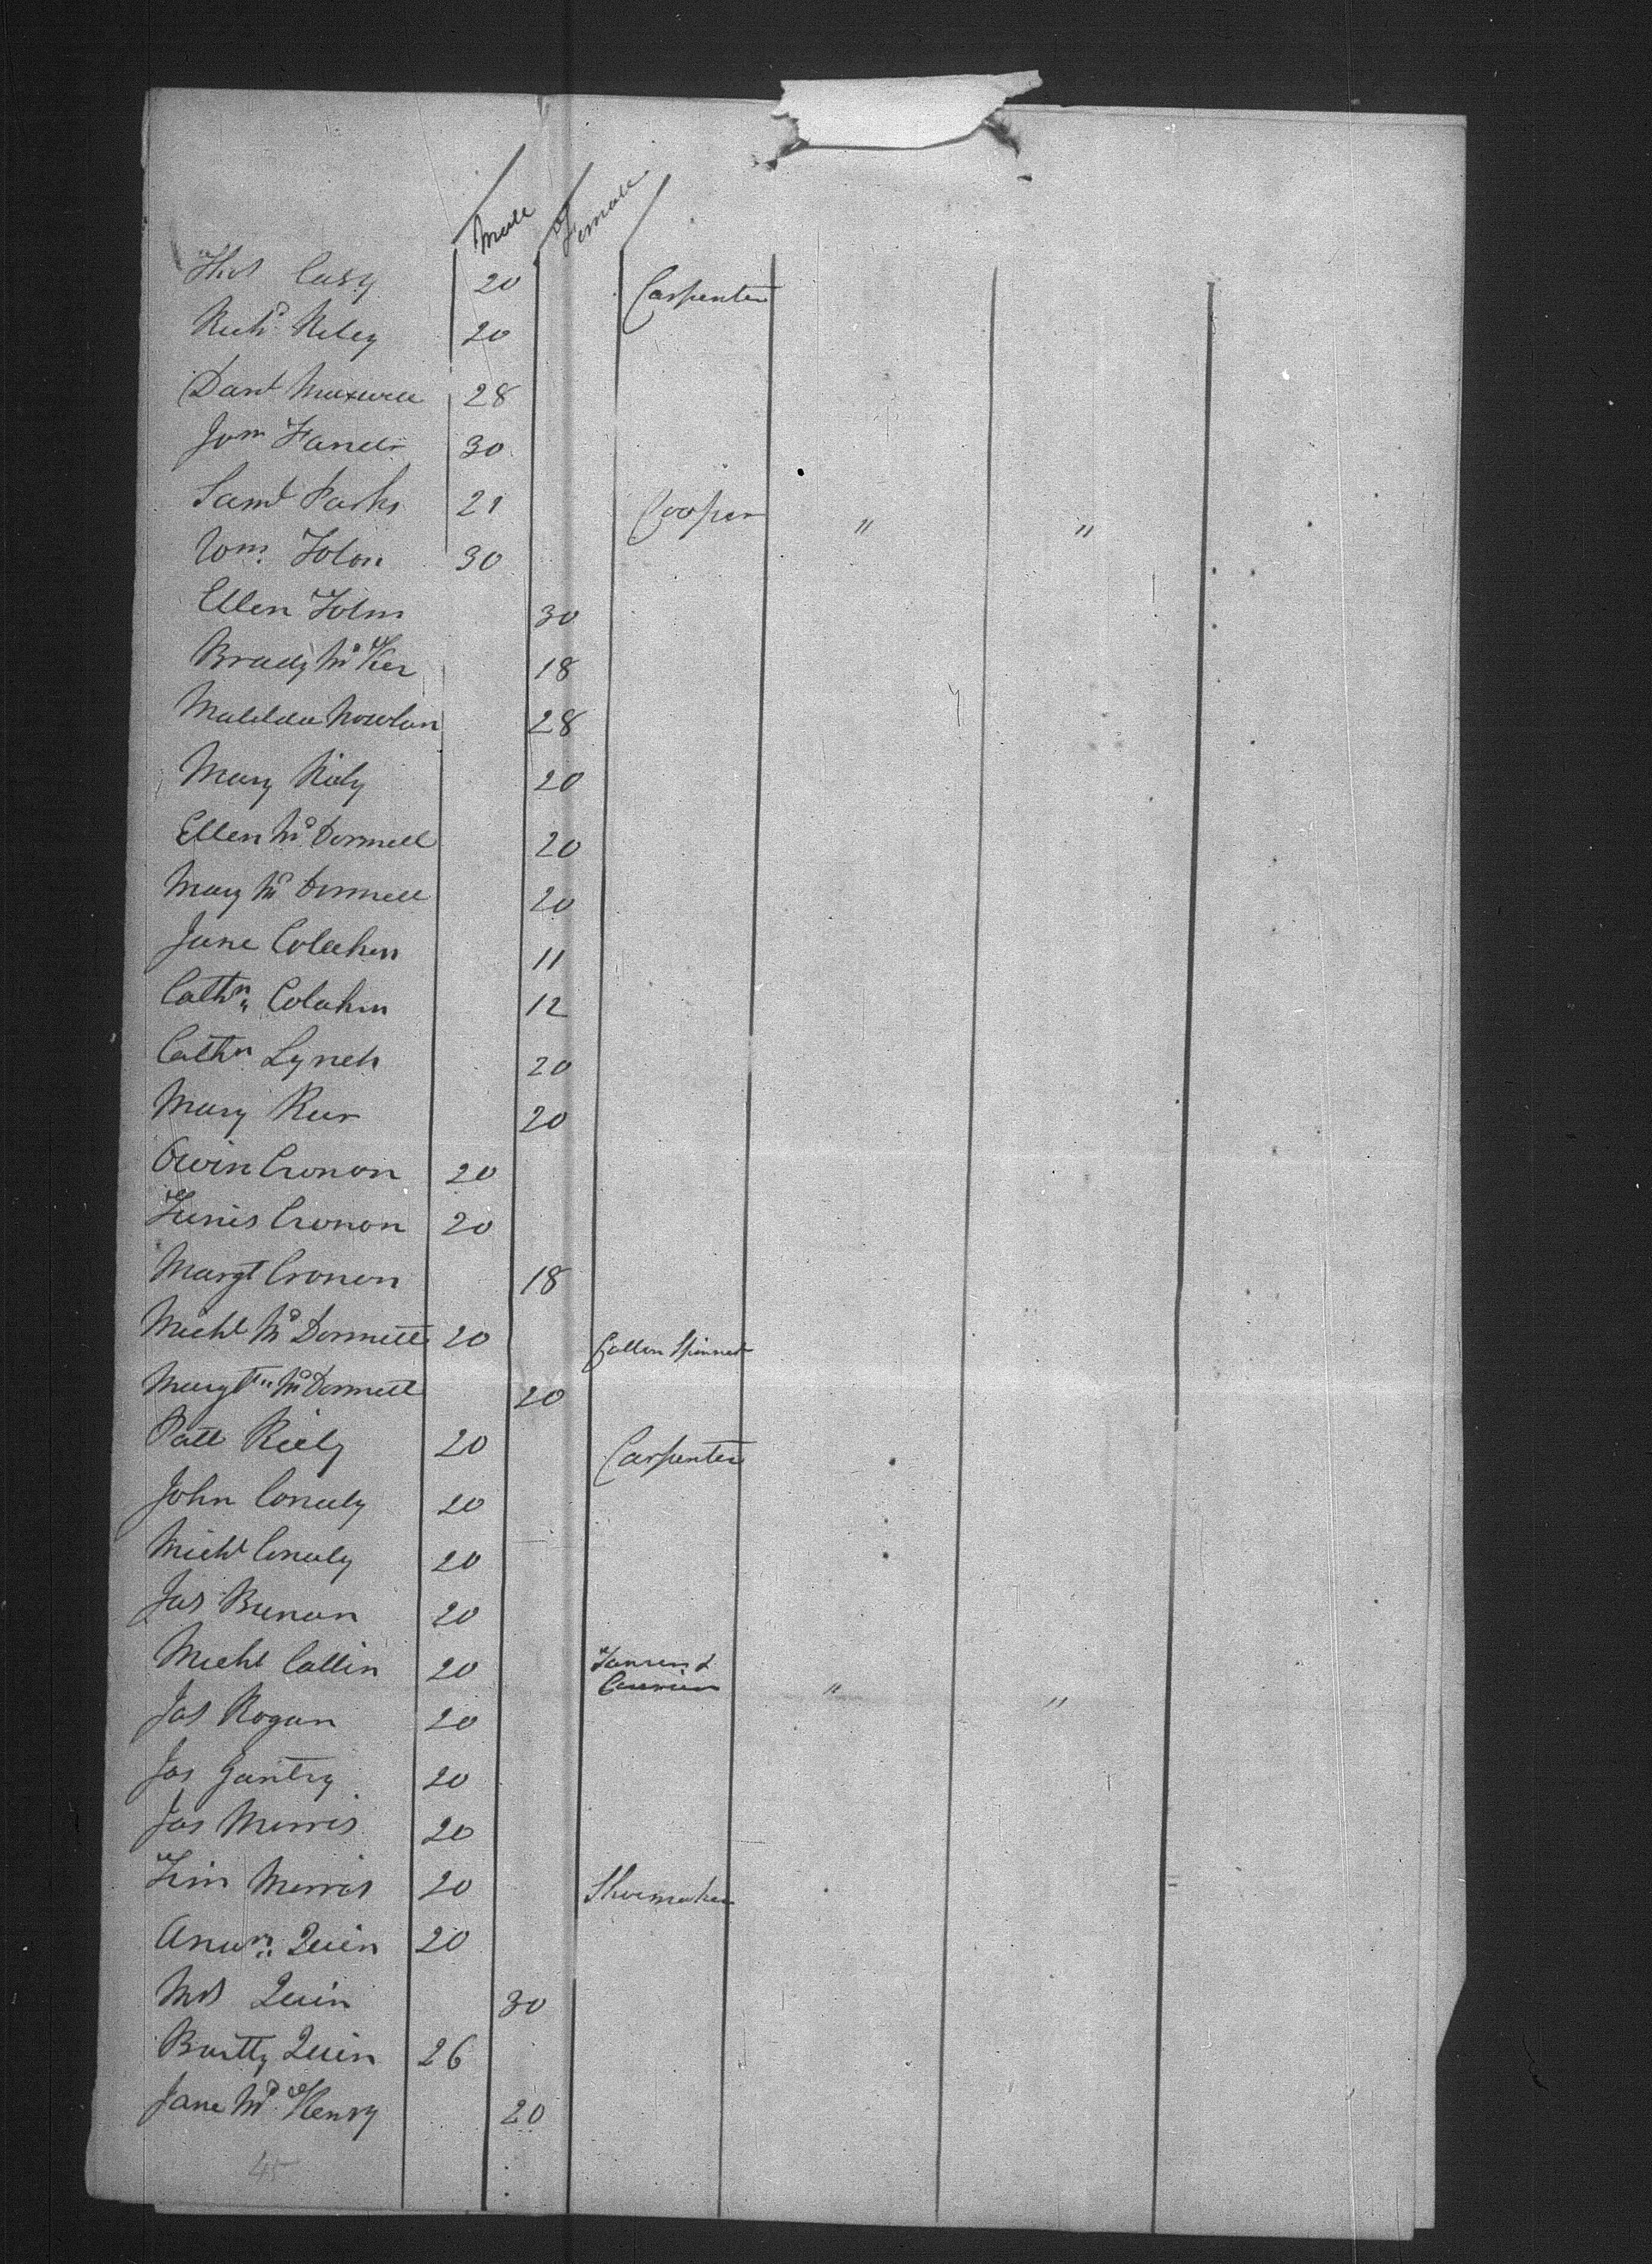 Male Female
Thos Casy 20 Carpenter
Richd Reley 20
Danl Maxwell 28
Jom 30
Saml Parks 21 Cooper " "
Wm. Tolan 30
Ellen Tolan 30
Brady McKer 18
Matilda Nowlan 28
Mary Riely 20
Ellen Mc Donnell 20
Mary Mc Donnell 20
Jane Colahan 11
Cathn Colahan 12
Cathn Lynch 20
Mary 20
Owin Cronon 20
Cronon 20
Margt Cronon 18
Michl Mc Donnell 20 Cotton Spinner
Margt Mc Donnell 20
Patt Riely 20 Carpenter
John Conely 20
Michl Conely 20
Jas Brenan 20
Michl Collin 20 Tanner &
Currier " "
Jas Rogan 20
Jas Gantry 20
Jas Morris 20
Tim Morris 20 Shoemaker
Quin 20
Mrs Quin 30
Bartty Quin 26
Jane Mc Henry 20
45